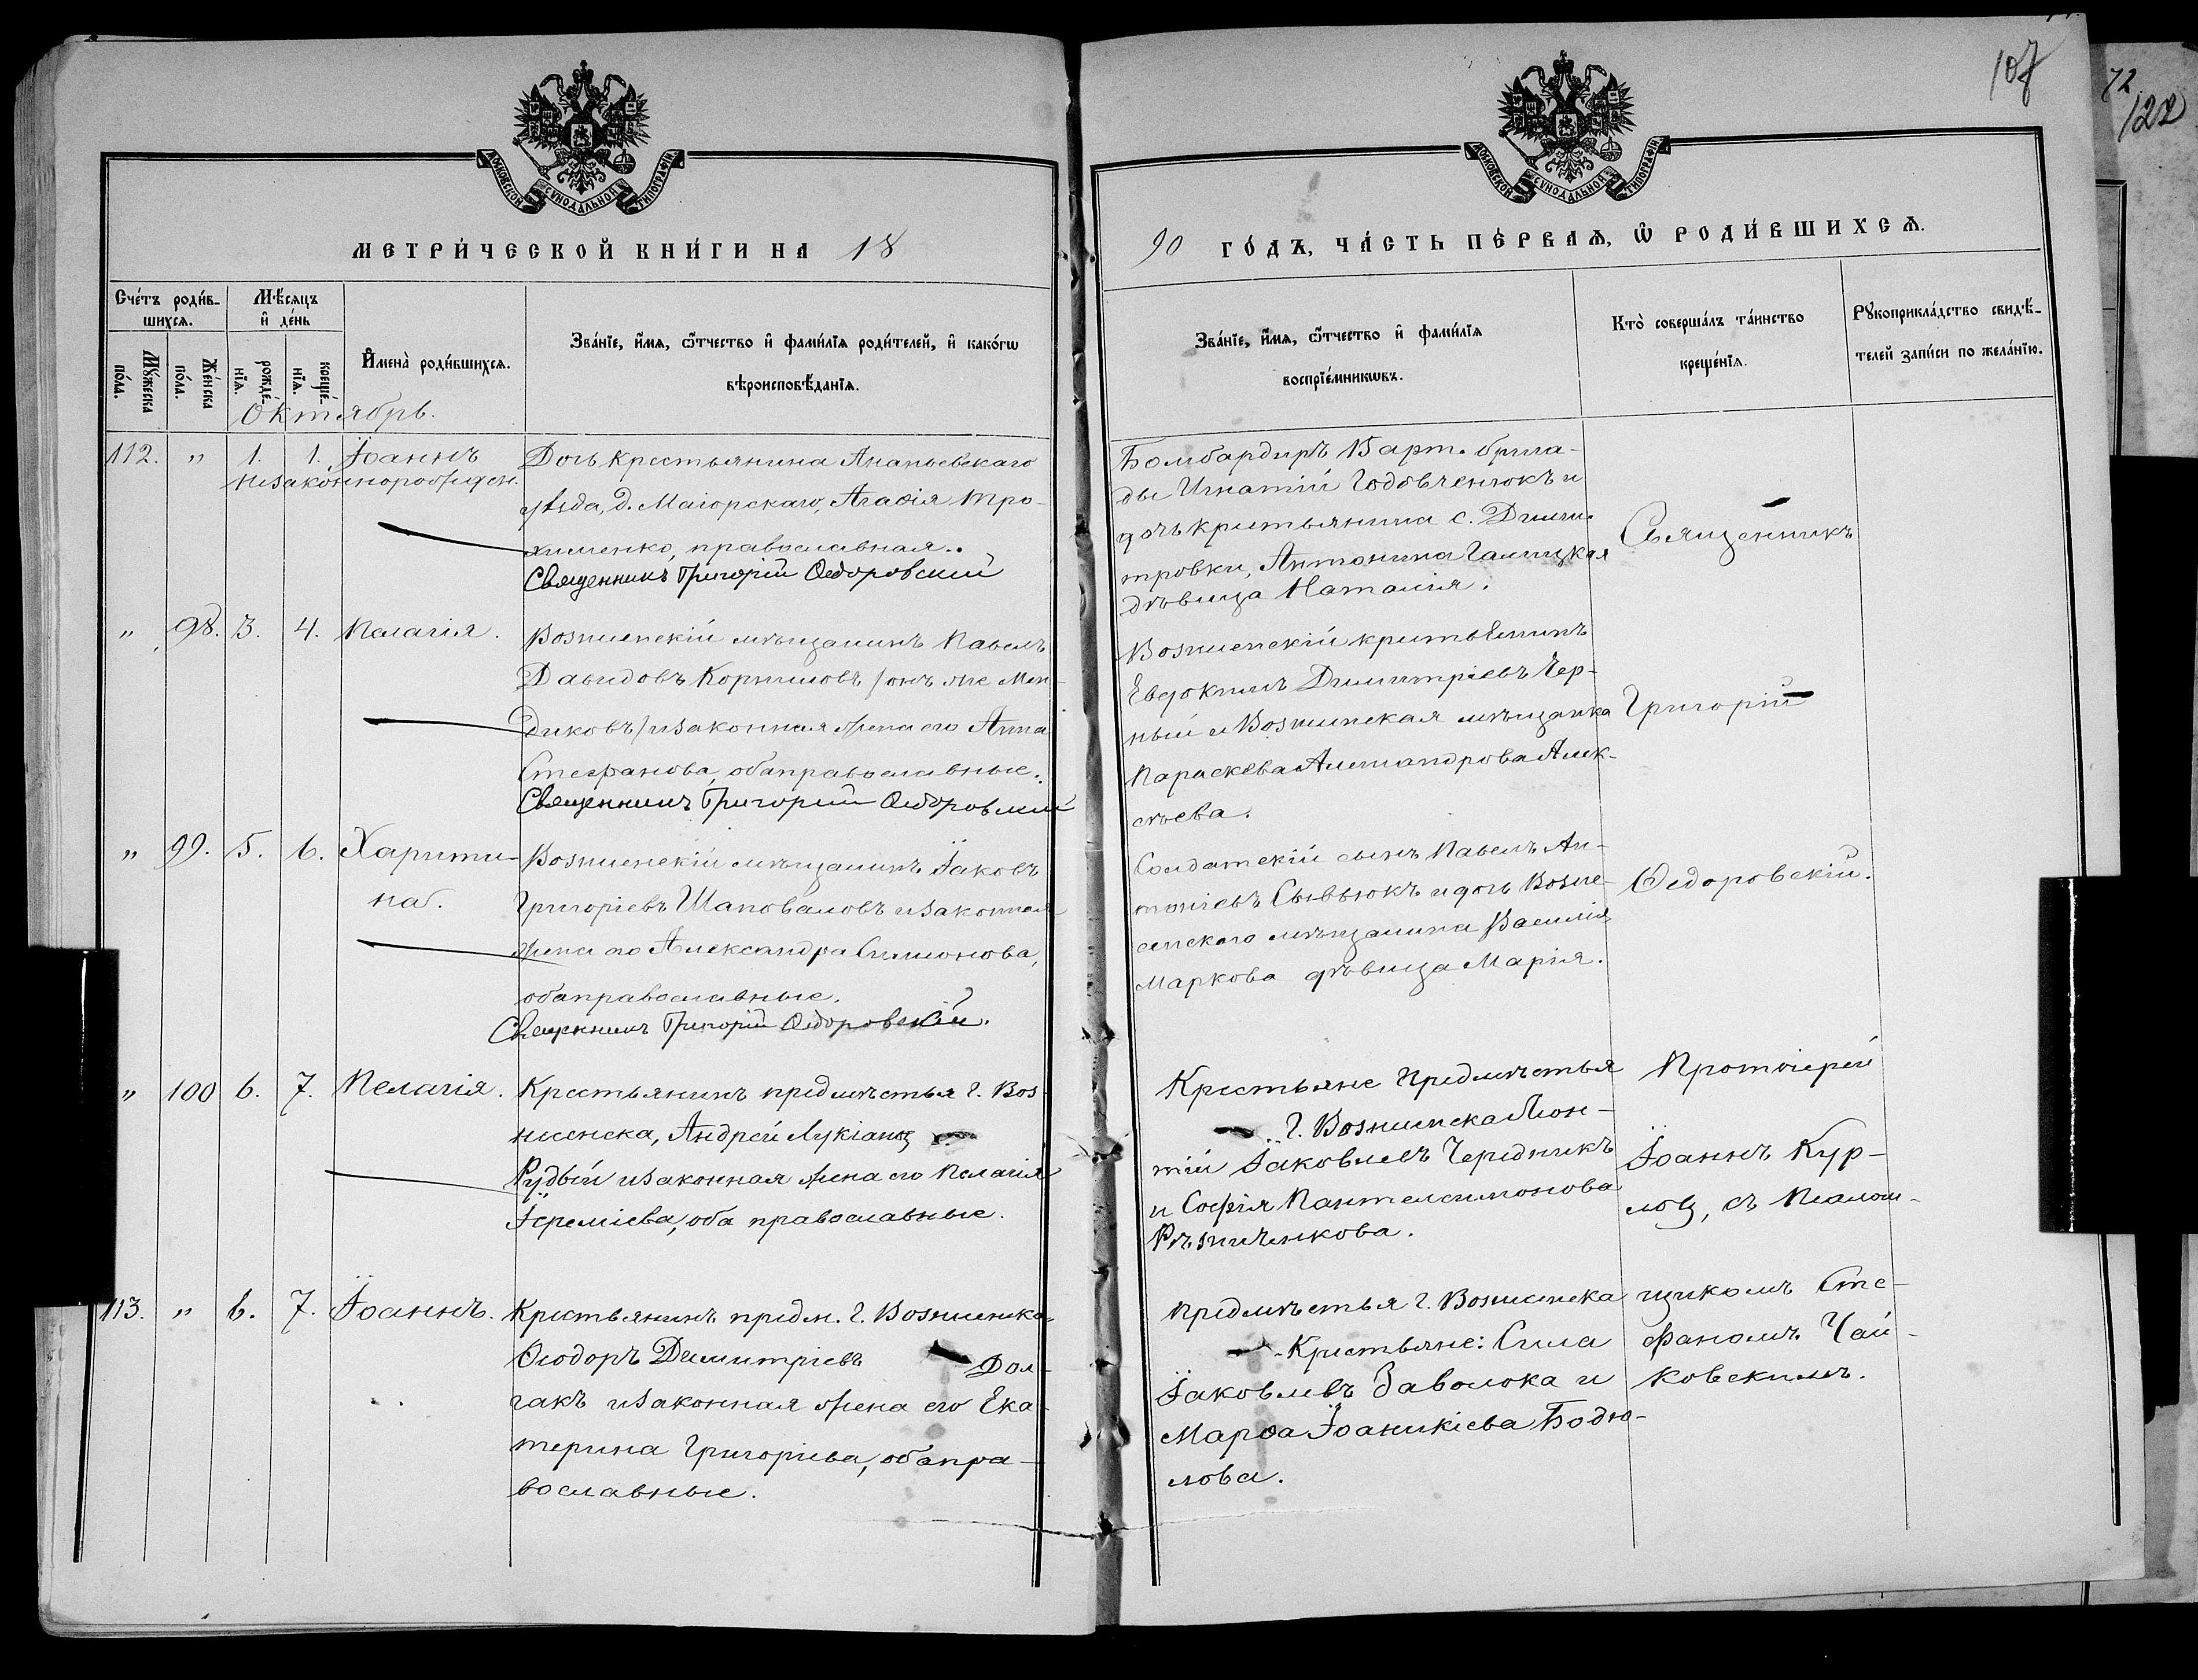 107
72
122
МОСКОВСКОЙ СѴНОДАЛЬНОЙ ТИПОГРАФІИ
МОСКОВСКОЙ СѴНОДАЛЬНОЙ ТИПОГРАФІИ
МЕТРИ́ЧЕСКОЙ КНИ́ГИ НА 18
90 ГО́ДЪ, ЧА́СТЬ ПЕ́РВАѦ, Ѡ РОДИ́ВШИХСѦ.
Сче́тъ роди́в-
шихсѧ.
Мѣ́сяцъ
и҆ де́нь
Мꙋ́жеска по́ла.
Же́нска по́ла.
рожде́-
нїѧ.
креще́-
нїѧ.
И҆мена̀ роди́вшихсѧ.
Зва́нїе, и҆́мѧ, ѻ҆́тчество и҆ фами́лїѧ роди́телей, и҆ како́гѡ
вѣроисповѣ́данїѧ.
Зва́нїе, и҆́мѧ, ѻ҆́тчество и҆ фами́лїѧ
воспрїе́мникѡвъ.
Кто̀ соверша́лъ та́инство
креще́нїѧ.
Рꙋкоприкла́дство свидѣ́-
телей за́писи по жела́нїю.
Октябрь.
112. " 1. 1. Іоаннъ
незаконнорожден.
Дочь крестьянина Ананьевскаго
уѣзда, д. Маіорскаго, Агаѳія Тро-
хименко, православная.
Священникъ Григорій Ѳедоровскій
Бомбардиръ 13 арт. брига-
ды Игнатій Годовченюкъ и
дочь крестьянина с. Дими-
тровки, Антонина Галицкая
дѣвица Наталія.
Священникъ
" 98. 3. 4. Пелагія.
Вознесенскій мѣщанинъ Павелъ
Давидовъ Корниловъ /онъ же Мен-
диковъ/ и законная жена его Анна
Стефанова, оба православные.
Священникъ Григорій Ѳедоровскій
Вознесенскій крестьянинъ
Евдокимъ Димитріевъ Чер-
ный и Вознесенская мѣщанка
Параскева Александрова Алек-
сѣева.
Григорій
" 99. 5. 6. Харити-
на.
Вознесенскій мѣщанинъ Іаковъ
Григоріевъ Шаповаловъ и законная
жена его Александра Симонова,
оба православные.
Священникъ Григорій Ѳедоровскій.
Солдатскій сынъ Павелъ Ан-
тоніевъ Сывьюкъ и дочь Возне-
сенскаго мѣщанина Василія
Маркова дѣвица Марія.
Ѳедоровскій.
" 100 6. 7. Пелагія.
Крестьянинъ предмѣстья г. Воз-
несенска, Андрей Лукіановъ
Рудый и законная жена его Пелагія
Іереміева, оба православные.
Крестьяне предмѣстья
г. Вознесенска Леон-
тій Іаковлевъ Чередникъ
и Софія Пантелеимонова
Рѣзниченкова.
Протоіерей
Іоаннъ Кур-
ловъ, съ Псалом-
113. " 6. 7. Іоаннъ.
Крестьянинъ предм. г. Вознесенска
Ѳеодоръ Димитріевъ Дол-
гакъ и законная жена его Ека-
терина Григоріева, оба пра-
вославные.
Предмѣстья г. Вознесенска
Крестьяне: Сила
Іаковлевъ Заволока и
Марѳа Іоаникіева Бодю-
лова.
щикомъ Сте-
фаномъ Чай-
ковскимъ.